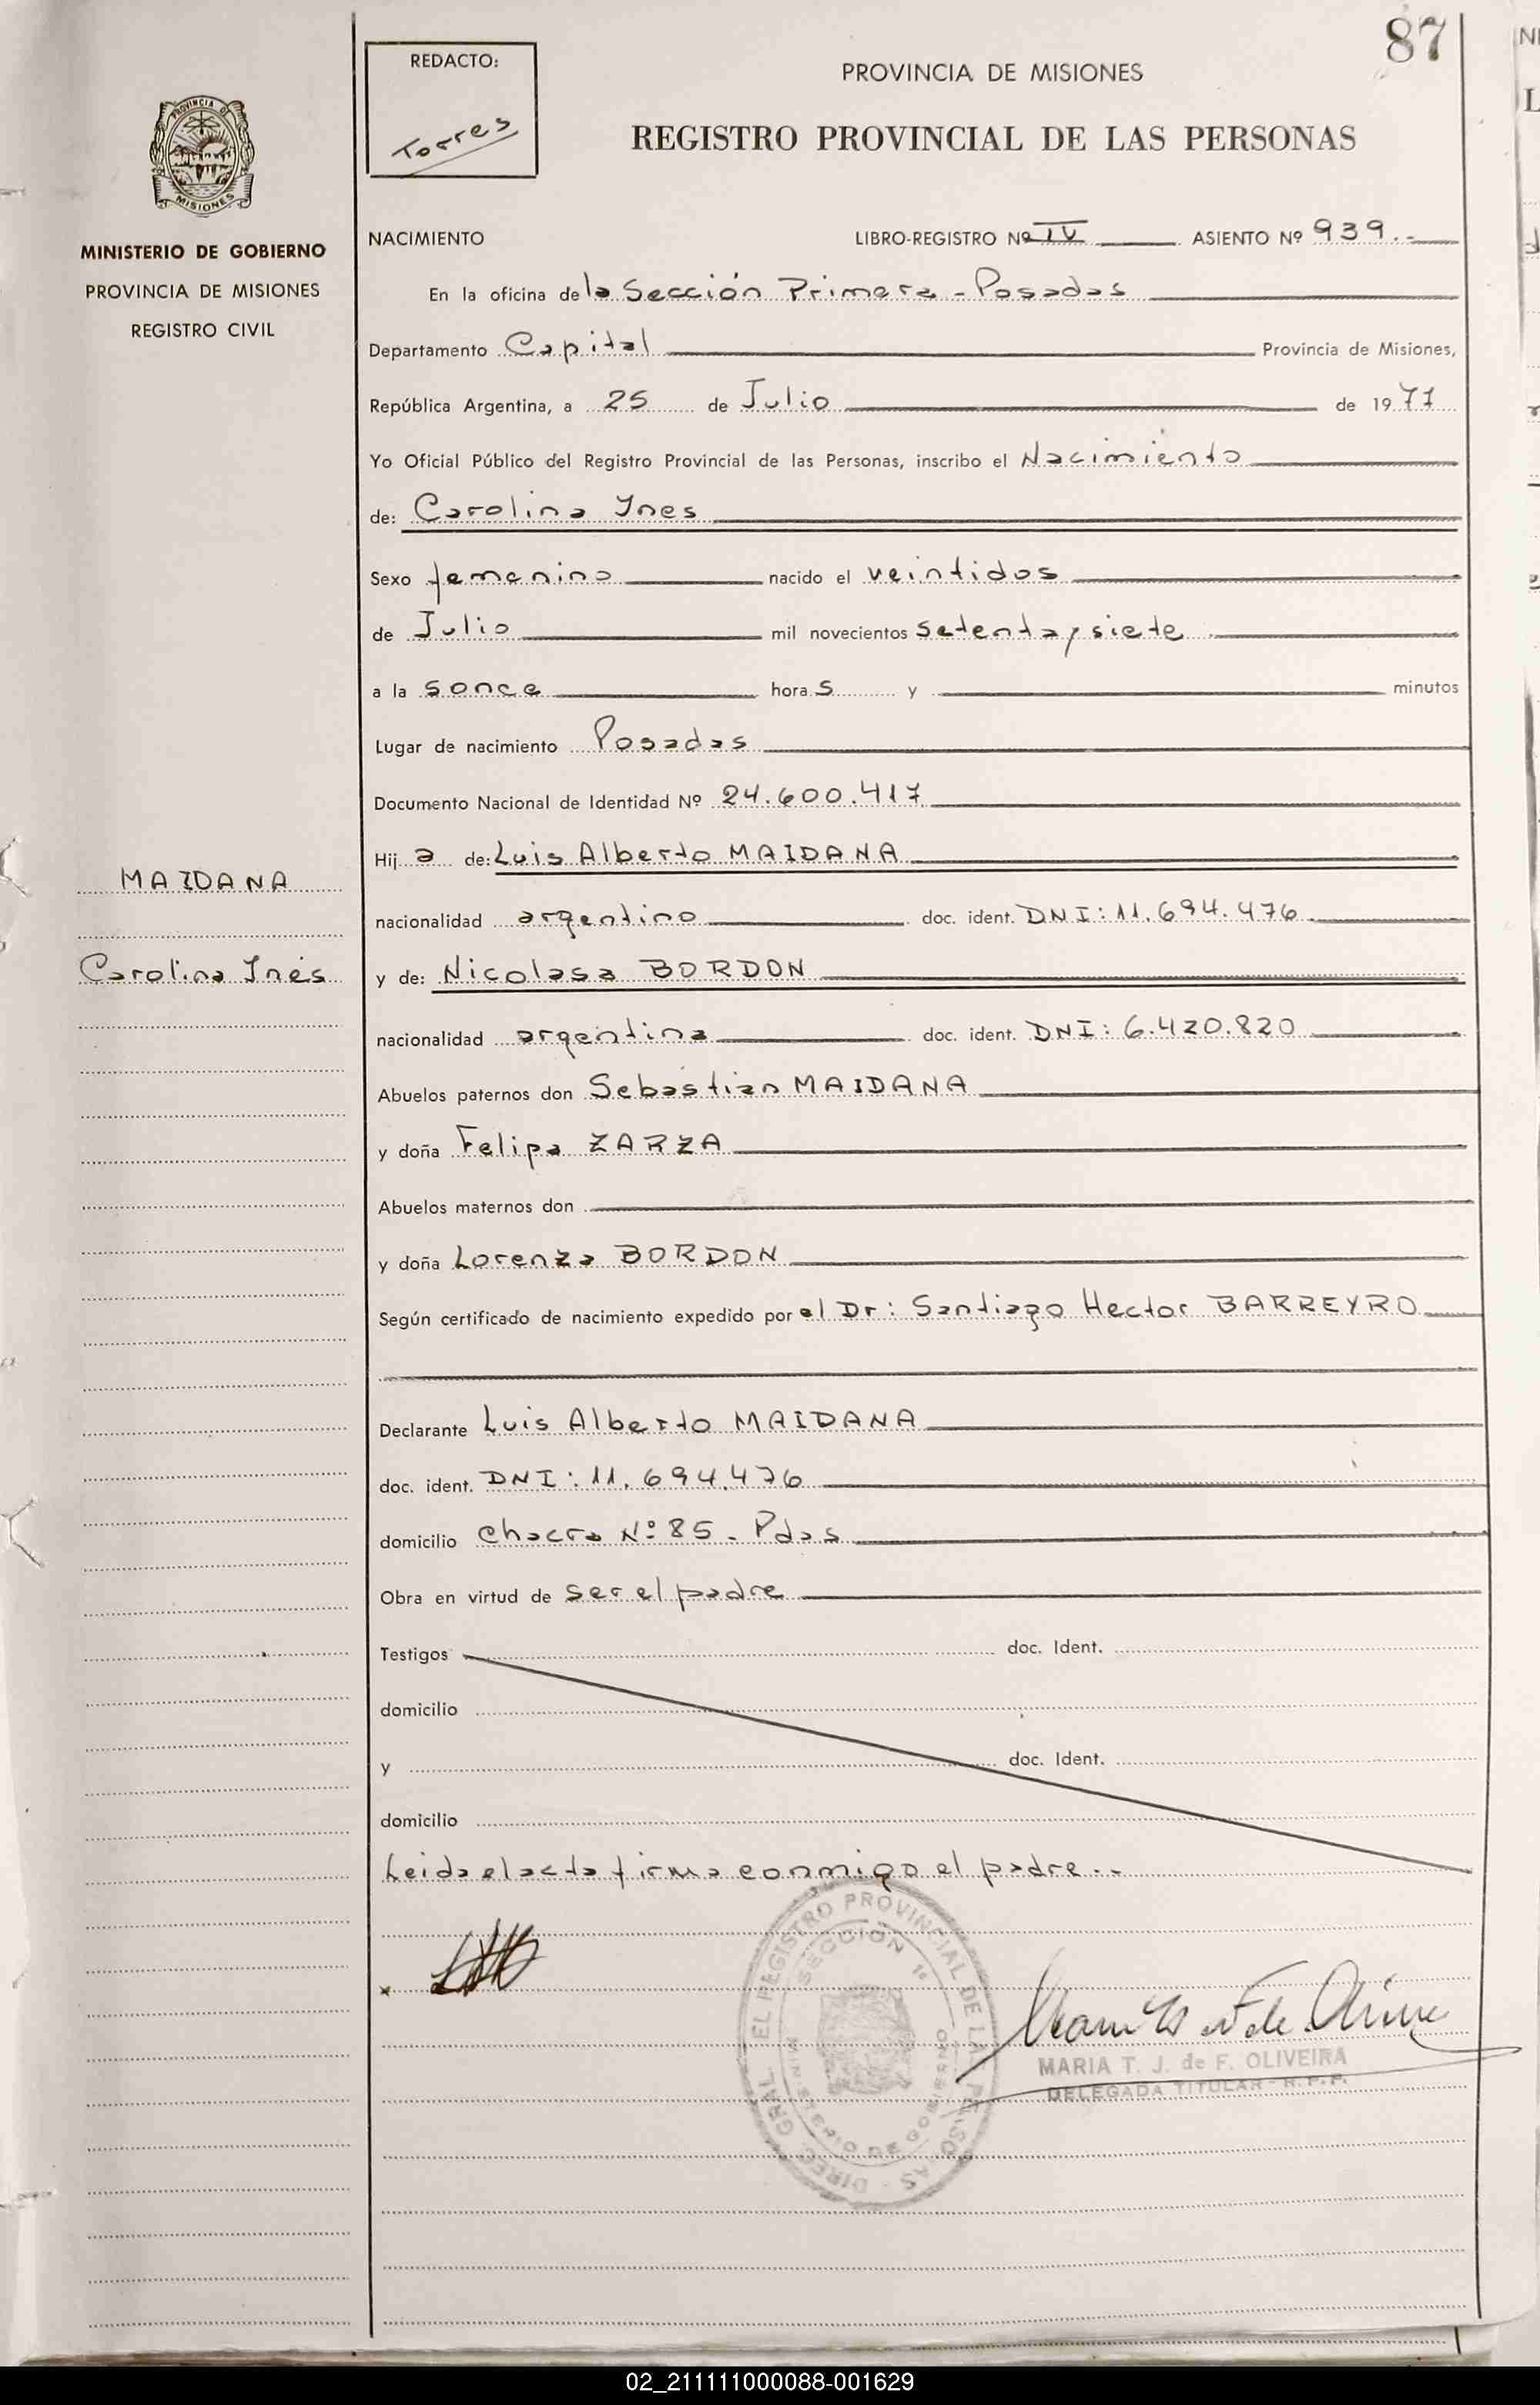 87
REDACTO:
Torres
PROVINCIA DE MISIONES
REGISTRO PROVINCIAL DE LAS PERSONAS
PROVINCIA DE MISIONES
MINISTERIO DE GOBIERNO
PROVINCIA DE MISIONES
REGISTRO CIVIL
MAIDANA
Carolina Inés
NACIMIENTO LIBRO-REGISTRO Nº IV ASIENTO Nº 939.-
En la oficina de la Sección Primera - Posadas
Departamento Capital Provincia de Misiones,
República Argentina, a 25 de Julio de 1977
Yo Oficial Público del Registro Provincial de las Personas, inscribo el Nacimiento
de: Carolina Ines
Sexo femenino nacido el veintidos
de Julio mil novecientos setenta y siete
a la s once hora s y minutos
Lugar de nacimiento Posadas
Documento Nacional de Identidad Nº 24.600.417
Hij a de: Luis Alberto MAIDANA
nacionalidad argentino doc. ident. DNI: 11.694.476
y de: Nicolasa BORDON
nacionalidad argentina doc. ident. DNI: 6.420.820
Abuelos paternos don Sebastian MAIDANA
y doña Felipa ZARZA
Abuelos maternos don
y doña Lorenza BORDON
Según certificado de nacimiento expedido por el Dr: Santiago Hector BARREYRO
Declarante Luis Alberto MAIDANA
doc. ident. DNI: 11.694.476
domicilio Chacra Nº 85 - Pdas
Obra en virtud de ser el padre
Testigos doc. Ident.
domicilio
y doc. Ident.
domicilio
Leida el acta firma conmigo el padre.-
DIREC. GRAL. EL REGISTRO PROVINCIAL DE LAS PERSONAS
SECCION 1ª
MINISTERIO DE GOBIERNO
MARIA T. J. de F. OLIVEIRA
DELEGADA TITULAR - R.P.P.
02_211111000088-001629